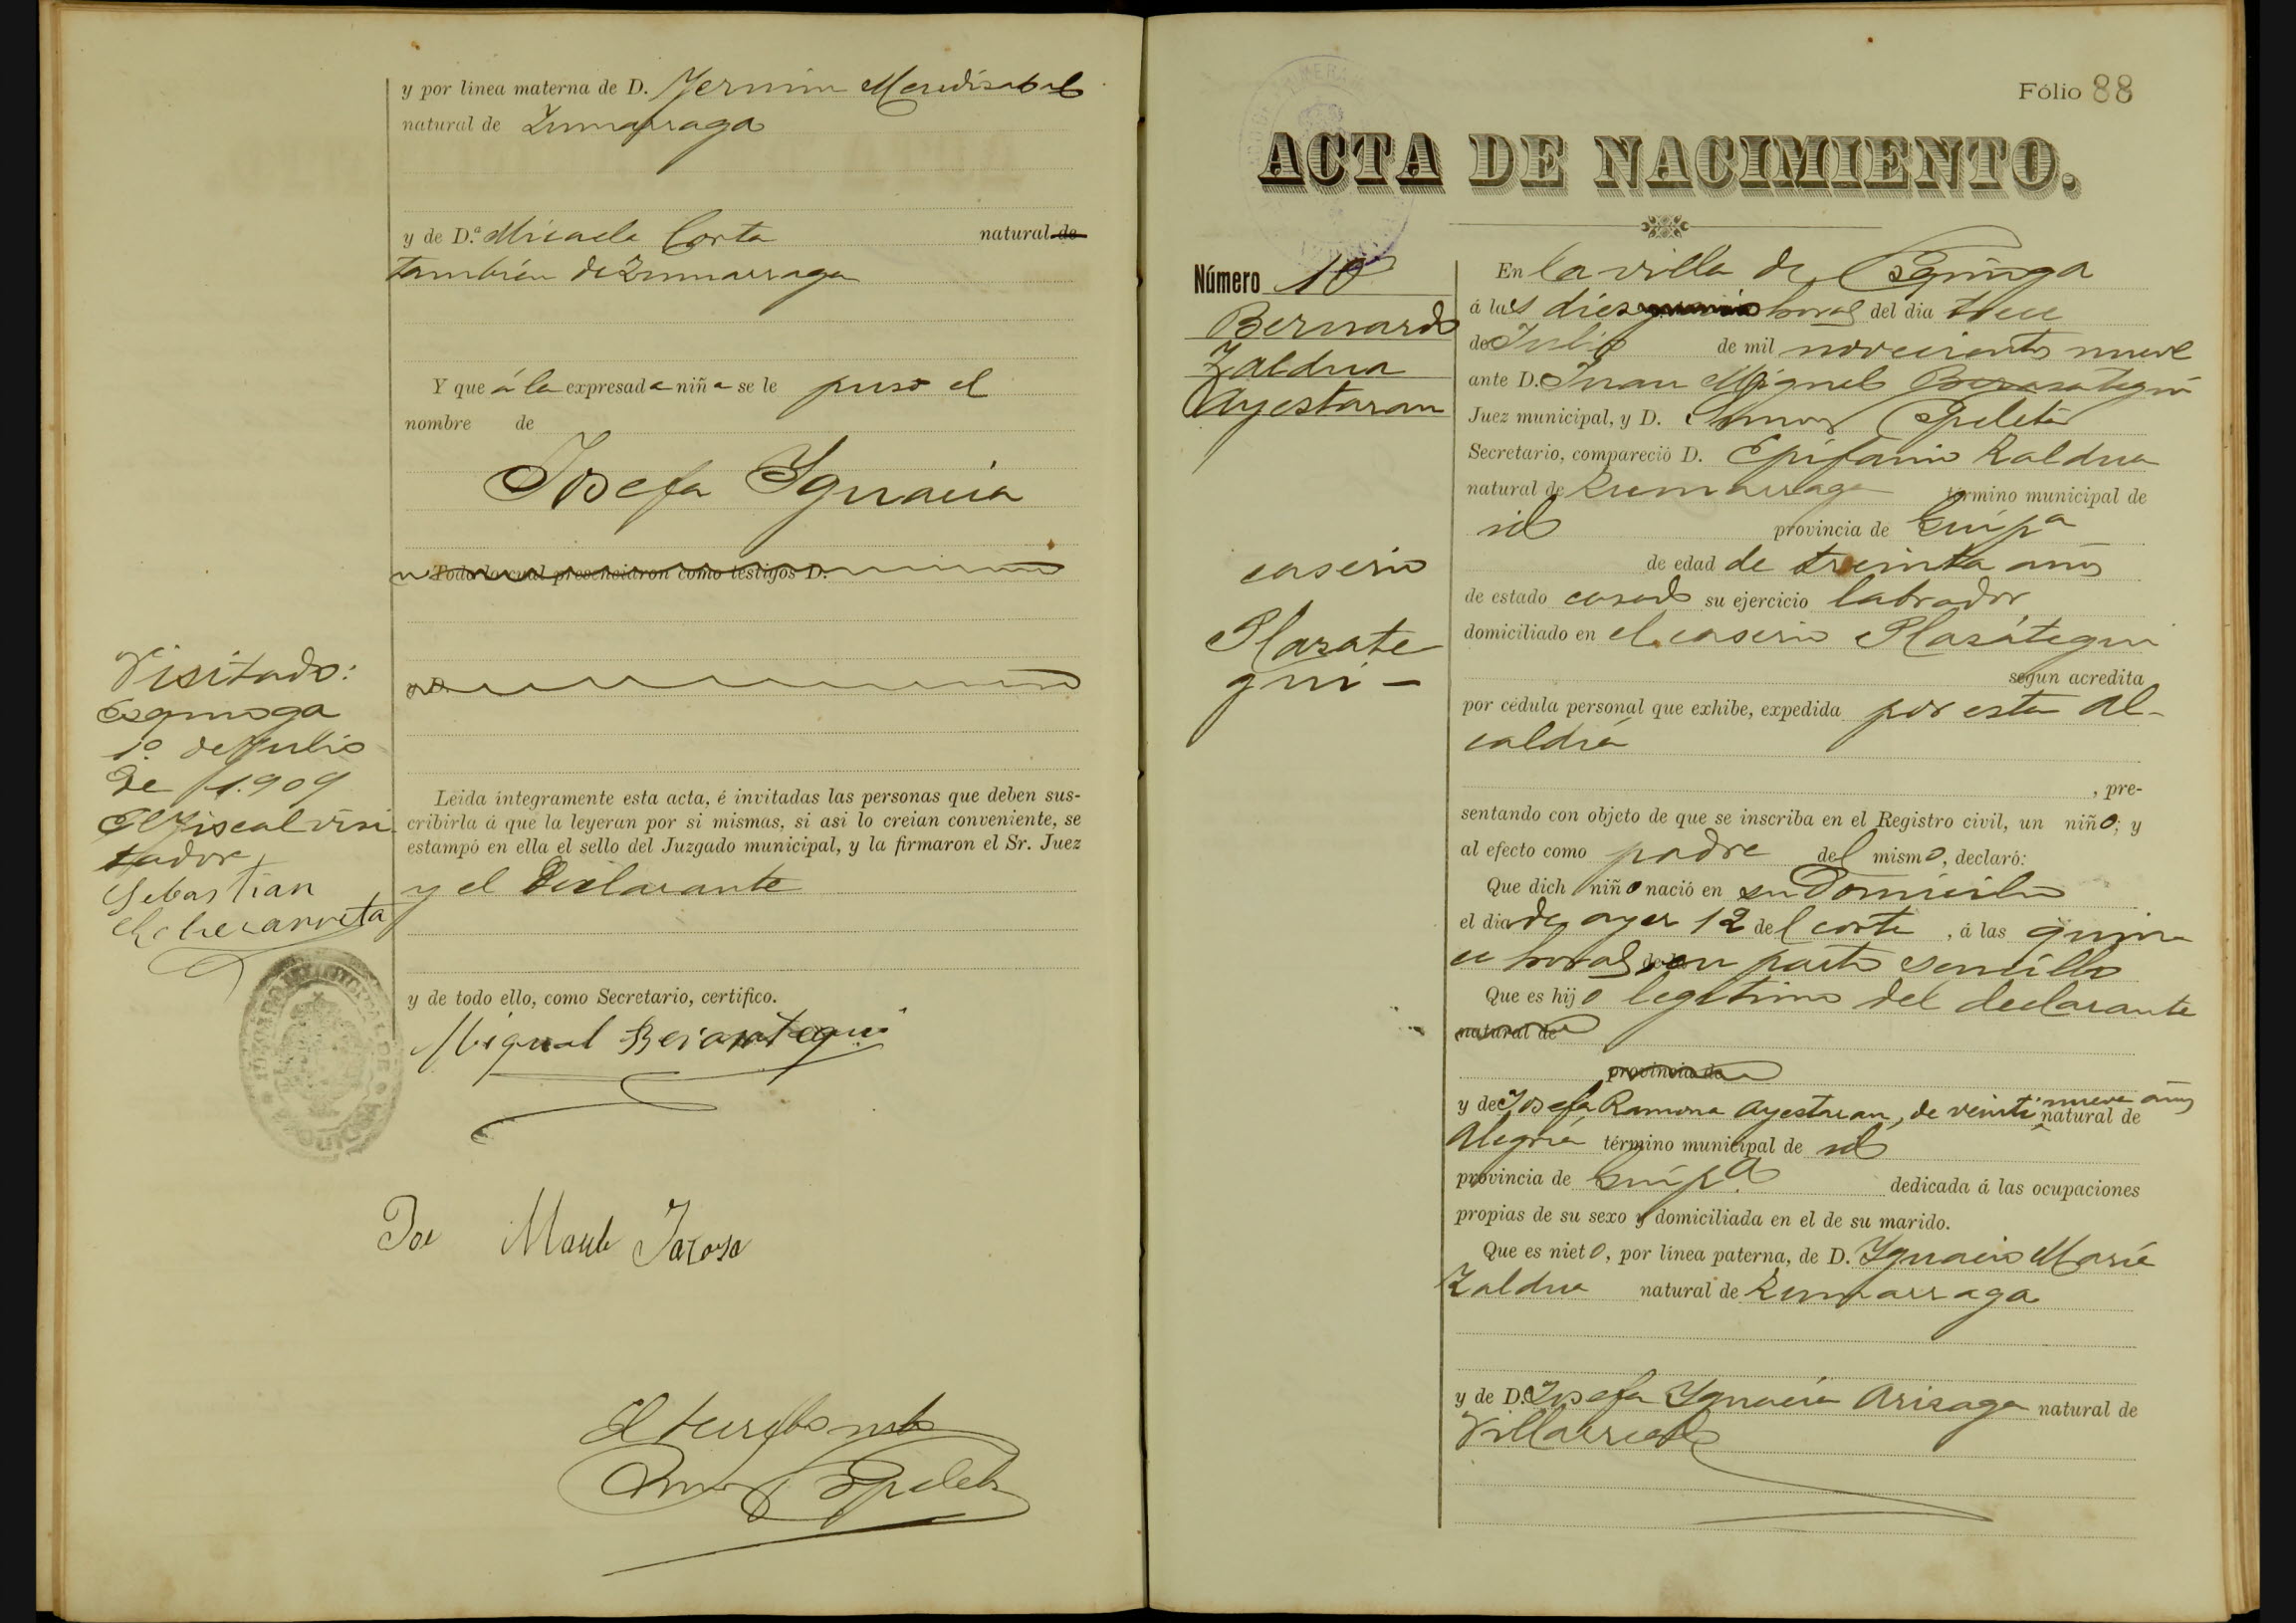 y por línea materna de D. Fermin Mendizabal
natural de Zumarraga
y de D.ª Micaela Corta natural de
tambien de Zumarraga
Y que á la expresada niña se le puso el
nombre de
Josefa Ygnacia
Todo lo cual presenciaron como testigos D.
y D.
Visitado:
Ezquioga
1º de Julio
de 1.909
El Fiscal visi
tador,
Sebastian
Echecarreta
Leida íntegramente esta acta, é invitadas las personas que deben sus-
cribirla á que la leyeran por si mismas, si asi lo creian conveniente, se
estampó en ella el sello del Juzgado municipal, y la firmaron el Sr. Juez
y el Declarante
y de todo ello, como Secretario, certifico.
Miguel Berasategui
El
Fólio 88
ACTA DE NACIMIENTO.
Número 10
Bernardo
Zaldua
Ayestaran
caserio
Plazate
gui –
En la villa de Ezquioga
á las dies horas del dia trece
de Julio de mil novecientos nueve
ante D. Juan Miguel Berasategui
Juez municipal, y D. Ezpeleta
Secretario, compareció D. Epifanio Zaldua
natural de Zumarraga término municipal de
id provincia de Guip.a
de edad de treinta años
de estado casado su ejercicio labrador
domiciliado en el caserio Plazátegui
segun acredita
por cédula personal que exhibe, expedida por esta Al-
caldía
, pre-
sentando con objeto de que se inscriba en el Registro civil, un niño; y
al efecto como padre del mismo, declaró:
Que dich niño nació en su Domicilio
el dia de ayer 12 del corte, á las quin
ce horas en parto sencillo
Que es hijo legítimo del declarante
natural de
provincia de
y de Josefa Ramona Ayestaran, de veinti nueve años natural de
Alegría término municipal de id
provincia de Guip.a dedicada á las ocupaciones
propias de su sexo y domiciliada en el de su marido.
Que es nieto, por línea paterna, de D. Ygnacio María
Zaldua natural de Zumarraga
y de D.ª Josefa Ygnacia Arizaga natural de
Villarreal